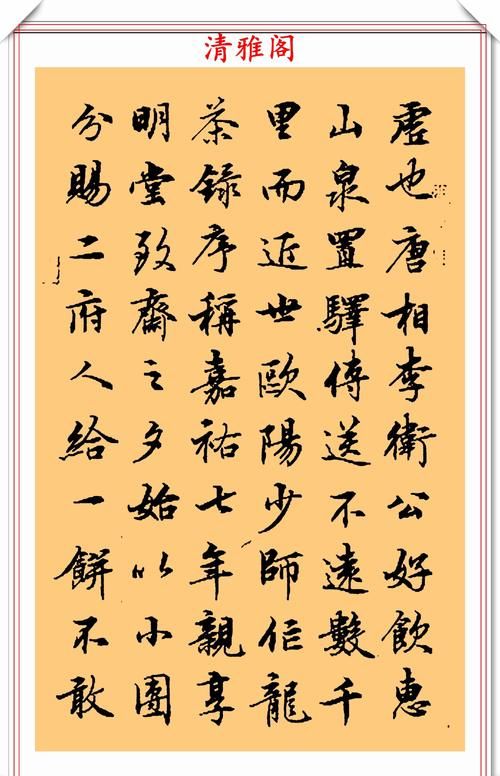 清雅阁
虚也唐相李衛公好飲惠
山泉置驛傳送不遠數千
里而近世歐陽少師作龍
茶録序稱嘉祐七年親享
明堂致齋之夕始以小團
分賜二府人給一餅不敢